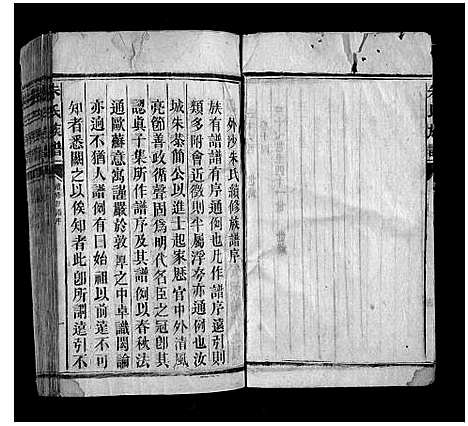 外沙朱氏續修族譜序
族有譜譜有序通例也凡作譜序遠引則
類多附會近徵則半屬浮夸亦通例也汝
城朱恭簡公以進士起家歷官中外清風
亮節善政循聲固為明代名臣之冠即其
認真子集所作譜序及其譜例以春秋法
通歐蘇意寓謹嚴於敦睦之中卓識閎論
亦逈不猶人譜例有曰始祖以前遠不可
知者悉闕之以俟知者此即所謂遠引不
朱氏族譜